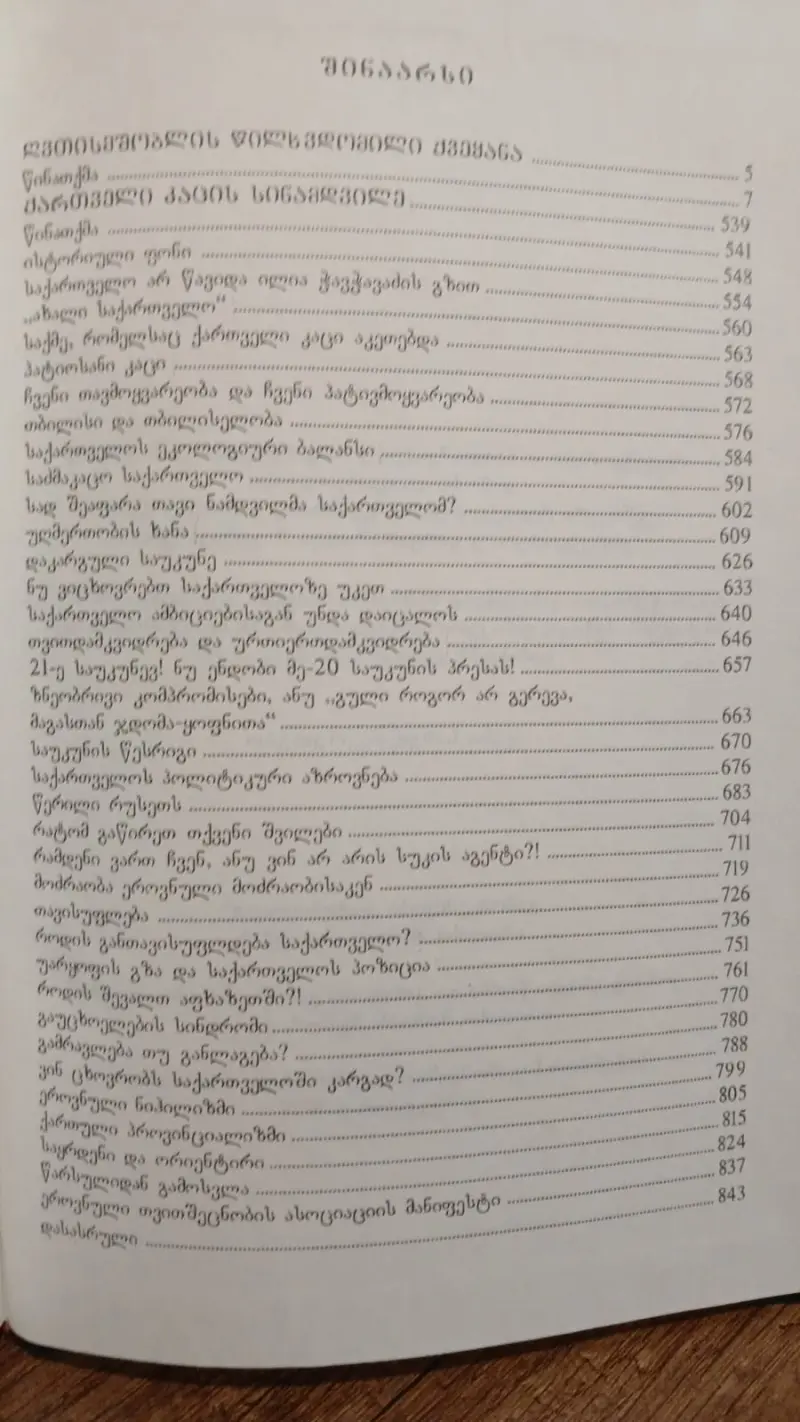 შინაარსი
ღვთისმშობლის წილხვდომილი ქვეყანა ... 5
წინათქმა ... 7
ქართველი კაცის სინამდვილე ... 539
წინათქმა ... 541
ისტორიული ფონი ... 548
საქართველო არ წავიდა ილია ჭავჭავაძის გზით ... 554
„ახალი საქართველო“ ... 560
საქმე, რომელსაც ქართველი კაცი აკეთებდა ... 563
პატიოსანი კაცი ... 568
ჩვენი თავმოყვარეობა და ჩვენი პატივმოყვარეობა ... 572
თბილისი და თბილისელობა ... 576
საქართველოს ეკოლოგიური ბალანსი ... 584
საძმაკაცო საქართველო ... 591
სად შეაფარა თავი ნამდვილმა საქართველომ? ... 602
უღმერთობის ხანა ... 609
დაკარგული საუკუნე ... 626
ნუ ვიცხოვრებთ საქართველოზე უკეთ ... 633
საქართველო ამბიციებისაგან უნდა დაიცალოს ... 640
თვითდამკვიდრება და ურთიერთდამკვიდრება ... 646
21-ე საუკუნევ! ნუ ენდობი მე-20 საუკუნის პრესას! ... 657
ზნეობრივი კომპრომისები, ანუ „გული როგორ არ გერევა,
მაგასთან ჯდომა-ყოფნითა“ ... 663
საუკუნის წესრიგი ... 670
საქართველოს პოლიტიკური აზროვნება ... 676
წერილი რუსეთს ... 683
რატომ გაწირეთ თქვენი შვილები ... 704
რამდენი ვართ ჩვენ, ანუ ვინ არ არის სუკის აგენტი?! ... 711
მოძრაობა ეროვნული მოძრაობისაკენ ... 719
თავისუფლება ... 726
როდის განთავისუფლდება საქართველო? ... 736
უარყოფის გზა და საქართველოს პოზიცია ... 751
როდის შევალთ აფხაზეთში?! ... 761
გაუცხოელების სინდრომი ... 770
გამრავლება თუ განლაგება? ... 780
ვინ ცხოვრობს საქართველოში კარგად? ... 788
ეროვნული ნიჰილიზმი ... 799
ქართული პროვინციალიზმი ... 805
საყრდენი და ორიენტირი ... 815
წარსულიდან გამოსვლა ... 824
ეროვნული თვითშეცნობის ასოციაციის მანიფესტი ... 837
დასასრული ... 843